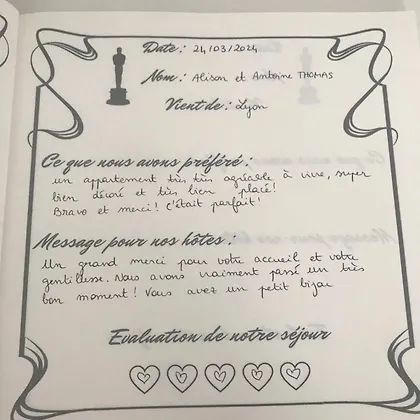 Date : 24/03/2024
Nom : Alison et Antoine THOMAS
Vient de : Lyon
Ce que nous avons préféré :
un appartement très très agréable à vivre, super
bien décoré et très bien placé!
Bravo et merci! C'était parfait!
Message pour nos hôtes :
Un grand merci pour votre accueil et votre
gentillesse. Nous avons vraiment passé un très
bon moment! Vous avez un petit bijou
Evaluation de notre séjour